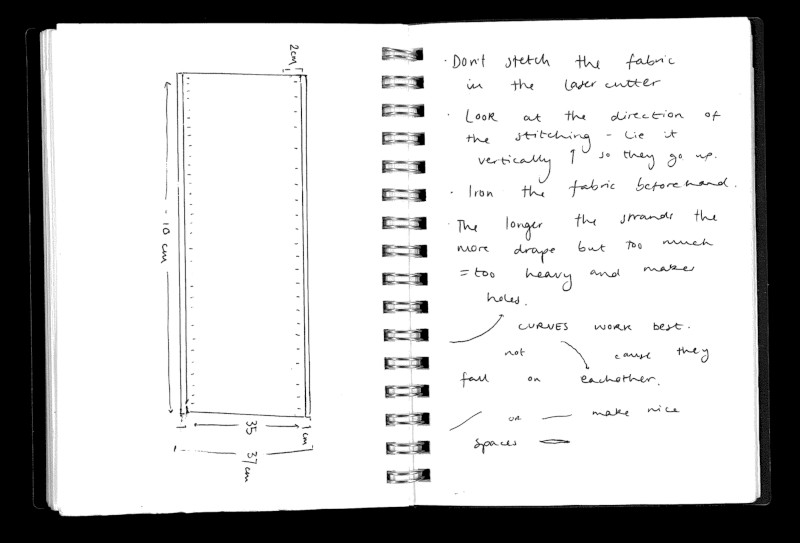 2cm
- 10 cm
1 35 1cm
37cm
· Don't stetch the fabric
in the laser cutter
· Look at the direction of
the stitching - lie it
vertically ↑ so they go up.
· Iron the fabric beforehand.
· The longer the strands the
more drape but too much
= too heavy and makes
holes.
CURVES work best.
not cause they
fall on eachother.
or make nice
spaces